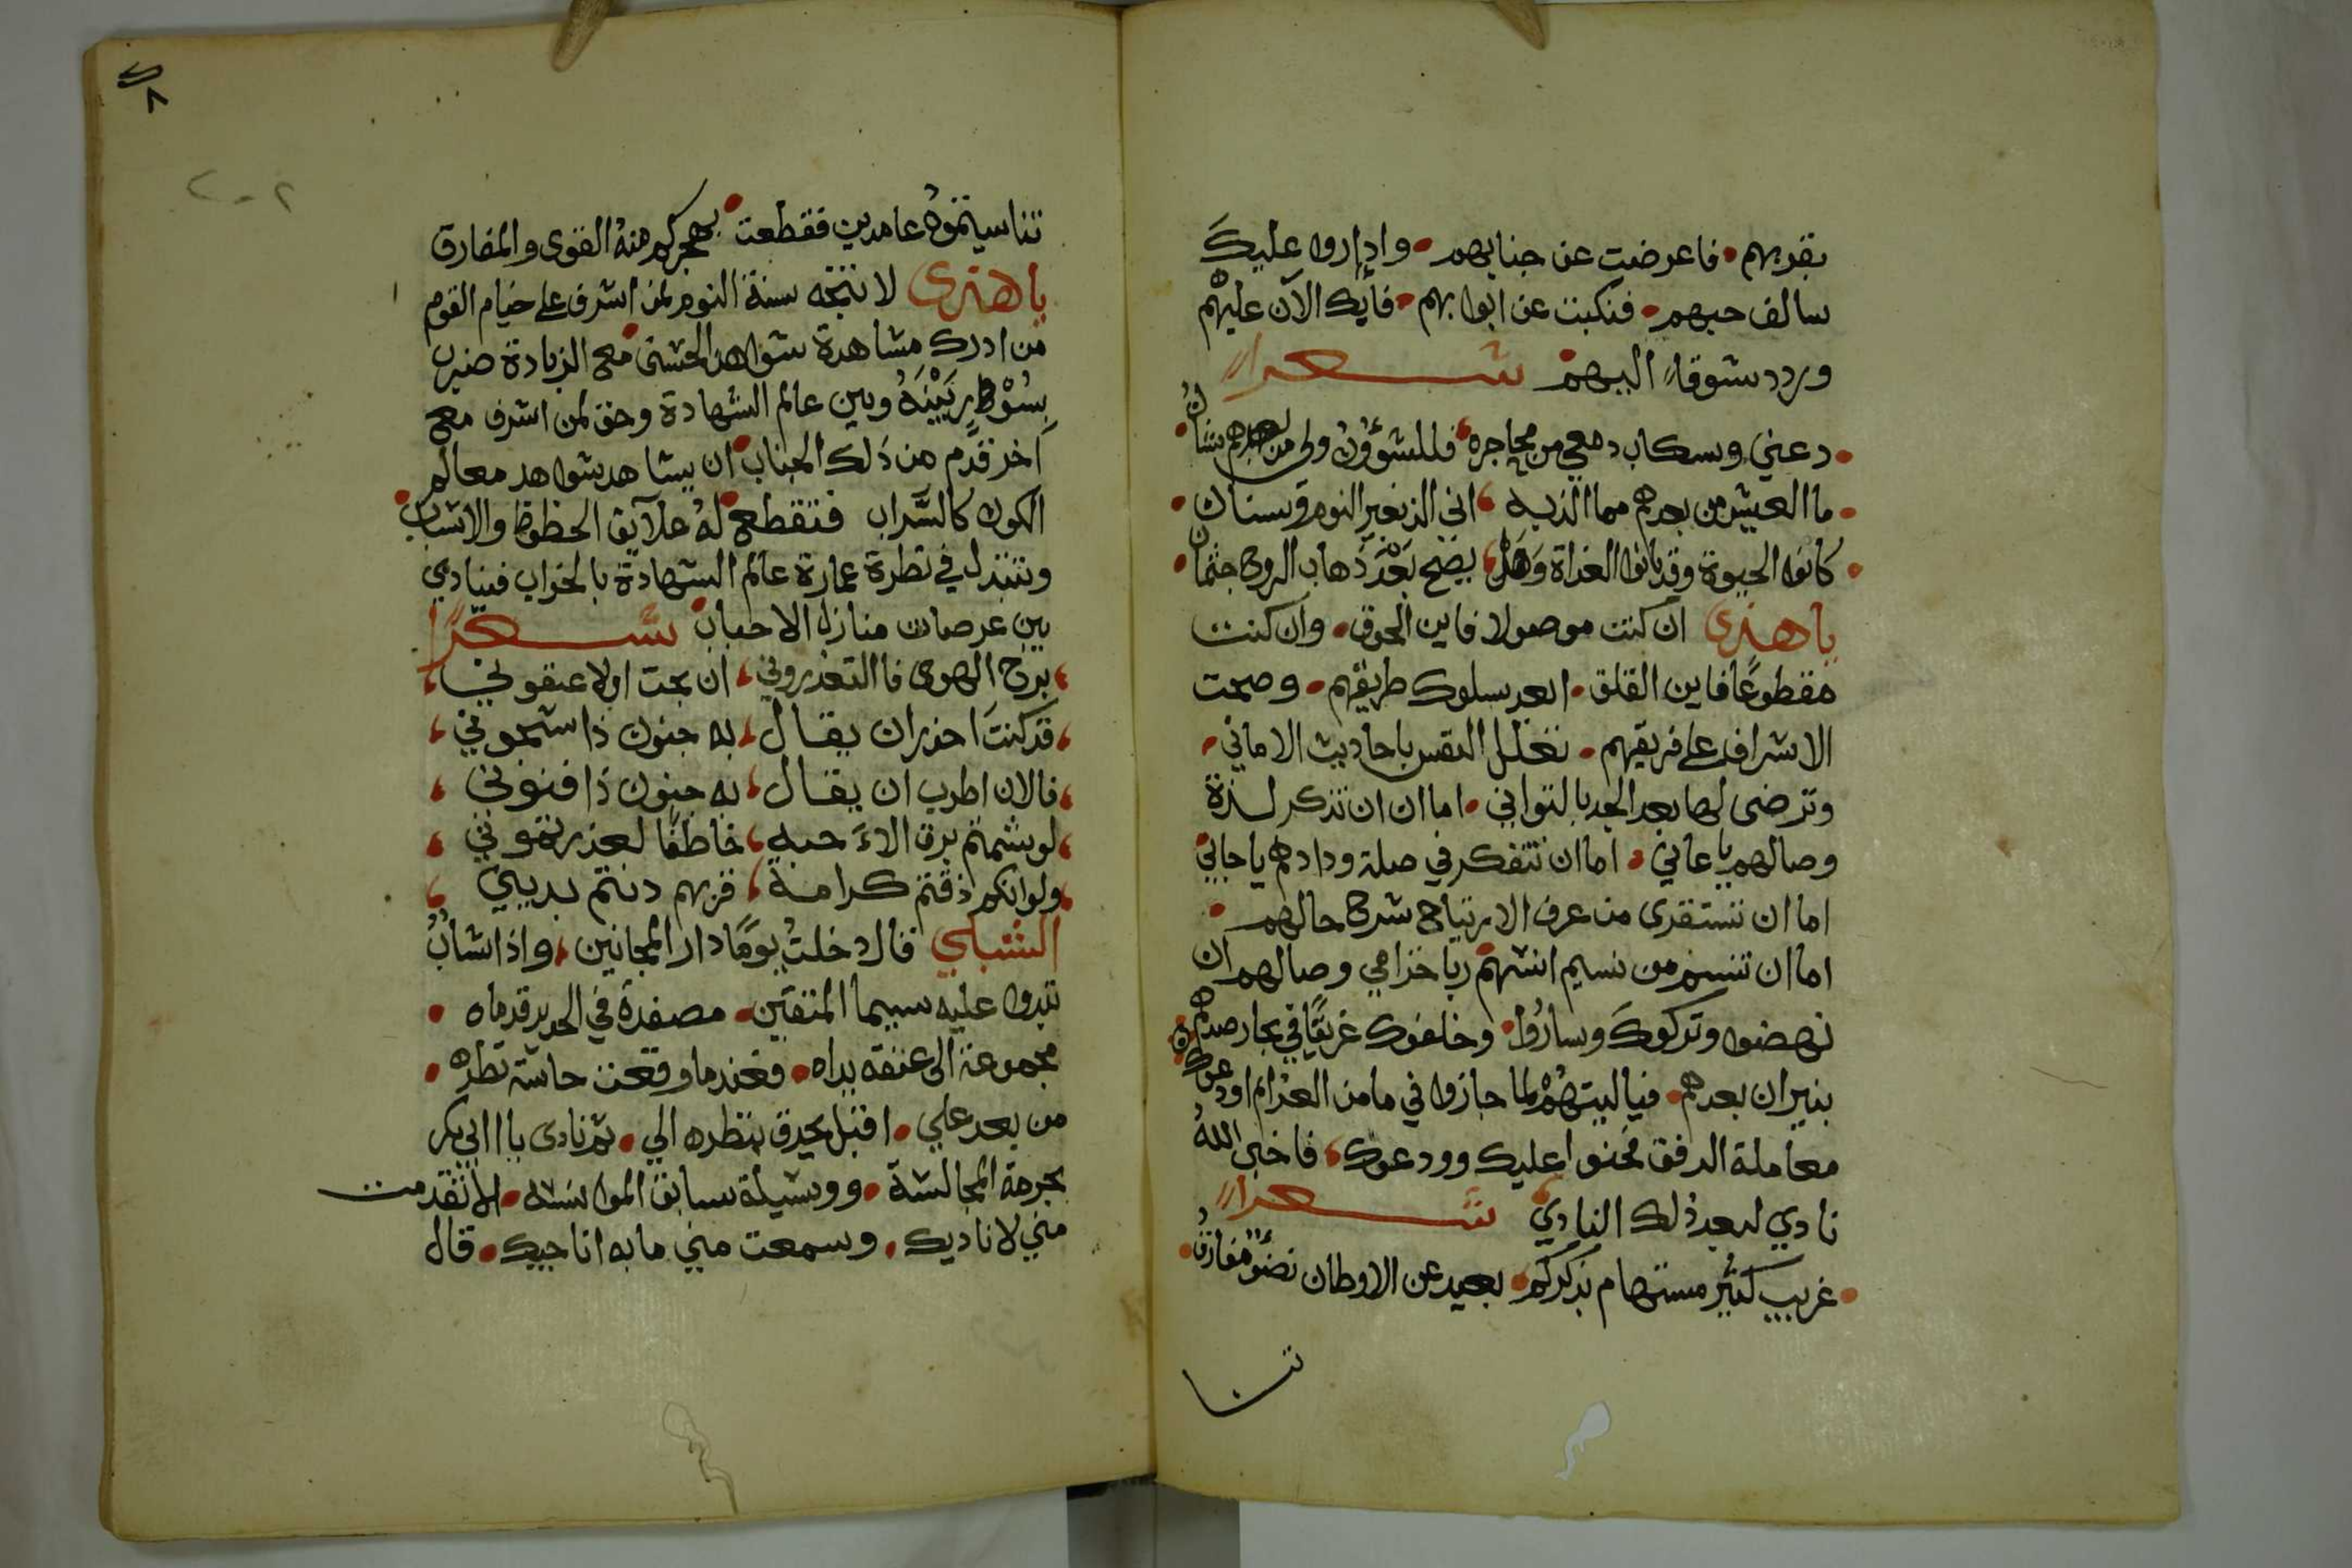 بقربهم • فاعرضت عن جنابهم • واداروا عليك
سالف حبهم • فنكبت عن ابوابهم • فابك الآن عليهم
وردد شوقاً اليهم شعراً
• دعني وسكاب دمعي من محاجره فللشؤون ولى من بعدهم شان •
• ما العيش من بعدهم مما الذبه انى الذ بغير النوم وسنان •
• كانوا الحيوة وقد بانوا الغداة وهل يصح بعد ذهاب الروح جثمان •
يا هذى ان كنت موصولا فاين الحرق • وان كنت
مقطوعًا فاين القلق • ابعد سلوك طريقهم • وصحت
الاشراف على فريقهم • تعلل النفس باحاديث الاماني •
وترضى لها بعد الجد بالتواني • اما ان ان تذكر لذة
وصالهم يا عاني • اما ان تتفكر في صلة ودادهم يا جاني
اما ان تستقرى من عرف الارتياح شرح حالهم •
اما ان تتنسم من نسيم انسهم ريا خزامي وصالهم ان
نهضوا وتركوك وساروا • وخلفوك غريقًا في بحار صدهم
بنيران بعدهم • فياليتهم لما جازوا في مامن الغرام اودعوك
معاملة الرفق فحنوا عليك وودعوك فاخبى الله
نادي لبعد ذلك النادي شعراً
• غريب كئيب مستهام بذكركم • بعيد عن الاوطان نضو مفارق •
تنا
٨
٢٠٢
تناسيتموه عامدين فقطعت • بهجركم منه القوى والمفارق
يا هذى لا تتجه سنة النوم لمن اشرف على خيام القوم
من ادرك مشاهدة شواهد الحسنى مع الزيادة ضرب
بسور بينه وبين عالم الشهادة وحق لمن اشرف مع
آخر قدم من ذلك الجناب ان يشاهد شواهد معالم
الكون كالسراب فتقطع له علايق الحظوظ والاسباب
وتتبدل في نظرة عمارة عالم الشهادة بالخراب فينادي
بين عرصات منازل الاحباب شعراً
برح الهوى فا التعذروني ان بحت اولا عنفوني
قد كنت احذر ان يقال به جنون ذا شجوني
فالان اطرب ان يقال به جنون ذا فنوني
لو شمتم برق الاء حبه خاطفا لعذرتموني
ولو انكم ذقتم كرامة قربهم دنتم بديني
الشبلي قال دخلت يومًا دار المجانين واذا شاب
تبدوا عليه سيما المتقين • مصفدة في الحديد قدماه •
مجموعة الى عنقه يداه • فعندما وقعت حاسة نظره •
من بعد علي • اقبل يحدق بنظره الي • ثم نادى يا ابى بكر
بحرمة المجالسة • ووسيلة سابق الموانسه • الا تقدمت
مني لاناديك • وسمعت مني ما به اناجيك • قال